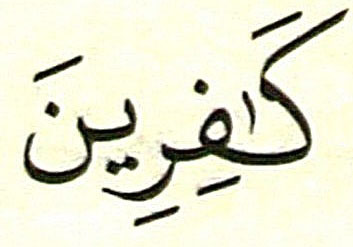 كَٰفِرِينَ